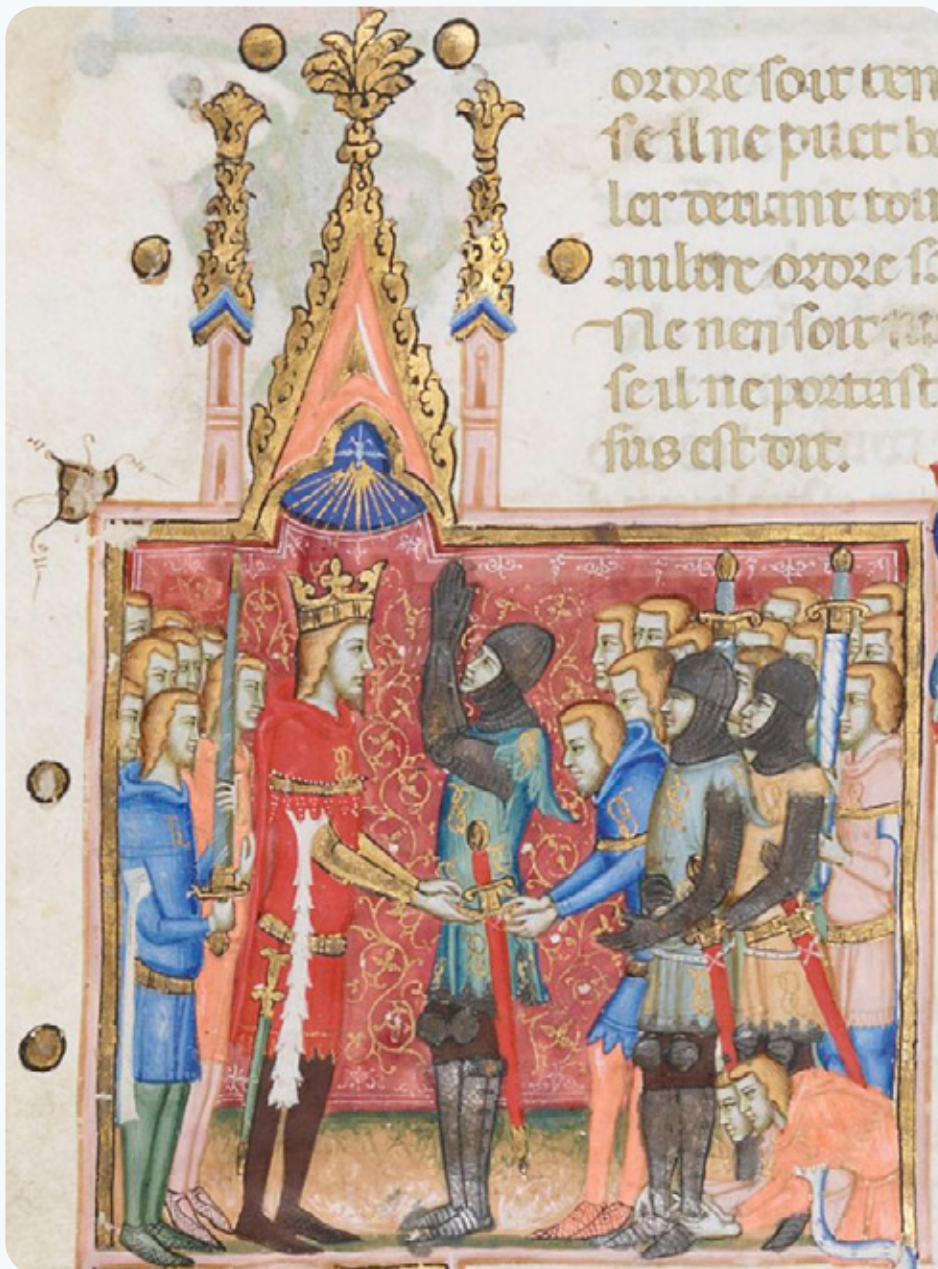 ordre soit ten
se il ne puet
ler devant tou
aultre ordre
Ne nen soit
se il ne portast
sus est dit.